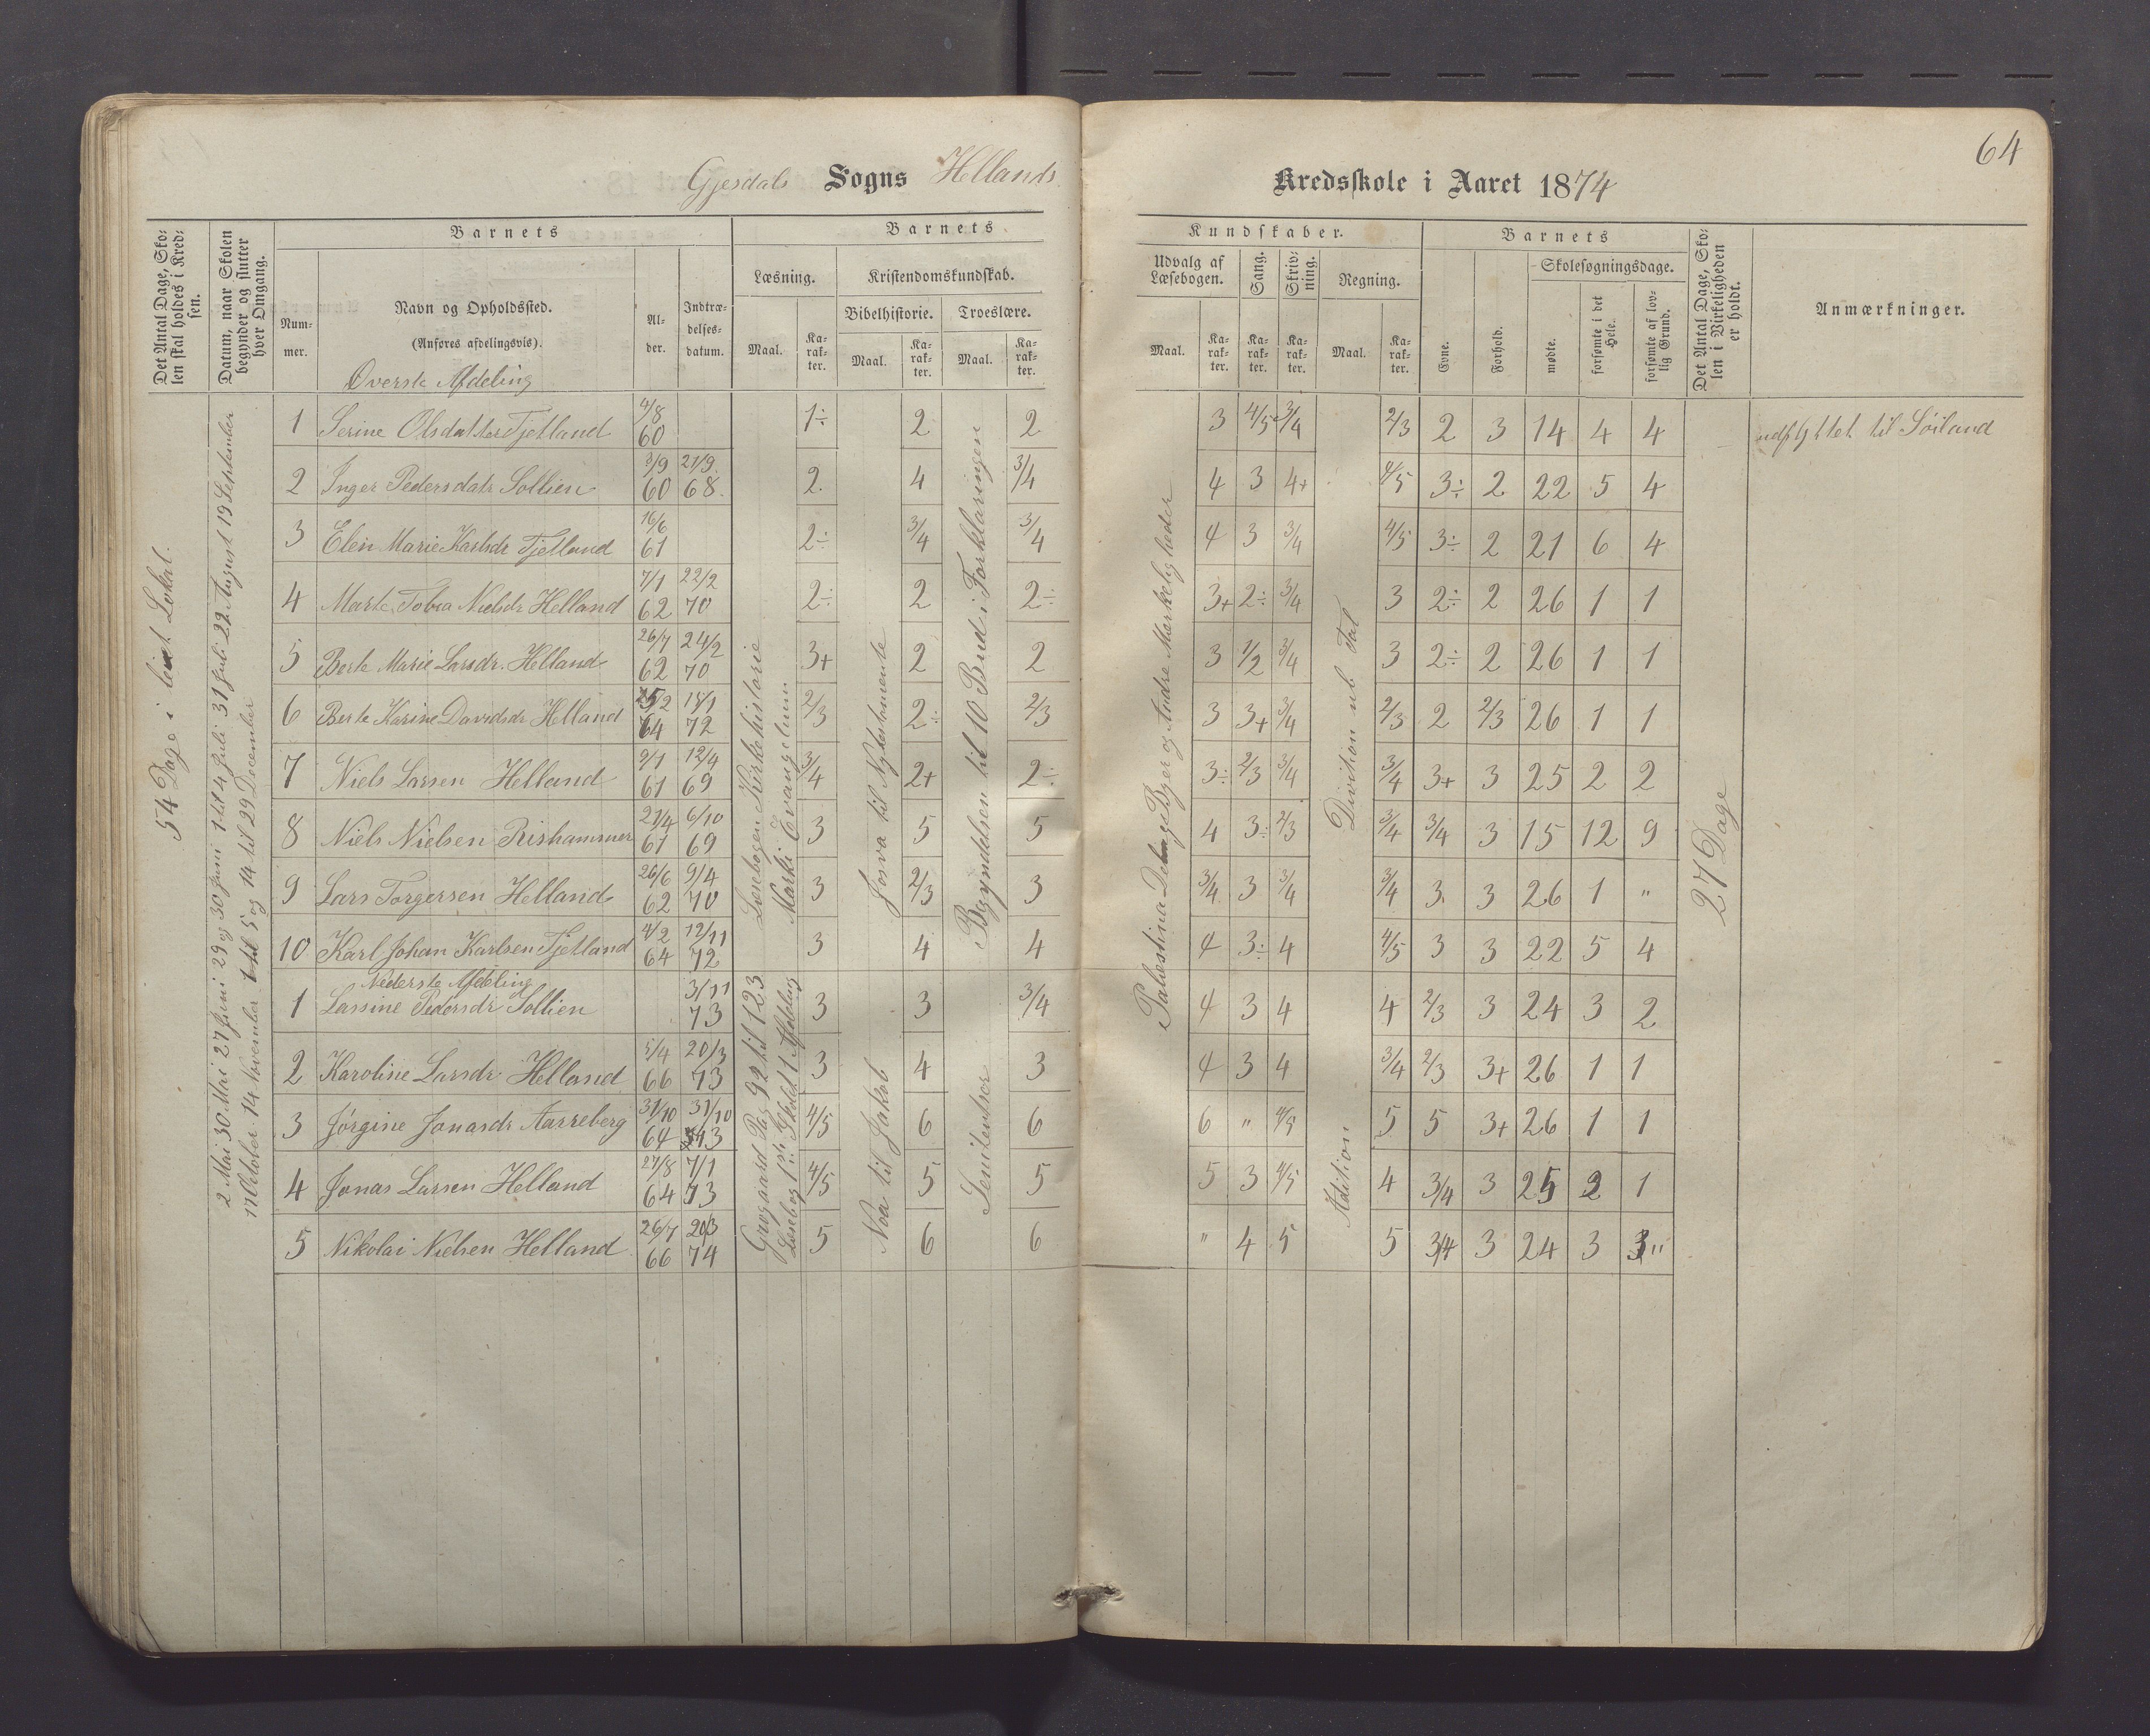 64
Gjesdals Sogns Hellands Kredsskole i Aaret 1874
Det Antal Dage, Sko-
len skal holdes i Kred-
sen.
Datum, naar Skolen
begynder og slutter
hver Omgang.
Barnets
Num-
mer.
Navn og Opholdssted.
(Anføres afdelingsvis).
Al-
der.
Indtræ-
delses-
datum.
Barnets
Læsning.
Maal.
Ka-
rak-
ter.
Kristendomskundskab.
Bibelhistorie.
Maal.
Ka-
rak-
ter.
Troeslære.
Maal.
Ka-
rak-
ter.
Kundskaber.
Udvalg af
Læsebogen.
Maal.
Ka-
rak-
ter.
Sang.
Ka-
rak-
ter.
Skriv-
ning.
Ka-
rak-
ter.
Regning.
Maal.
Ka-
rak-
ter.
Barnets
Evne.
Forhold.
Skolesøgningsdage.
mødte.
forsømte i det
Hele.
forsømte af lov-
lig Grund.
Det Antal Dage, Sko-
len i Virkeligheden
er holdt.
Anmærkninger.
54 Dage i leiet Lokal.
2 Mai 30 Mai 27 Juni 29 og 30 Juni 1 til 4 Juli 31 Juli 22 August 19 September
17 October 14 November 1 til 5 og 14 til 29 December
Læsebogen Kirkehistorie
Marki Evangelium
Josva til Nytestamente
Begyndelsen til 10 Bud i Forklaringen
Palæstina Delings Byer og Andre Mærkeligheder
Division ub Tal
27 Dage
Øverste Afdeling
1 Serine Olsdatter Tjetland 4/8 60 1÷ 2 2 3 4/5 3/4 2/3 2 3 14 4 4 udflyttet til Søiland
2 Inger Pedersdatr Sollien 3/9 60 21/9 68. 2. 4 3/4 4 3 4+ 4/5 3÷ 2 22 5 4
3 Elen Marie Karlsdr Tjetland 16/6 61 2÷ 3/4 3/4 4 3 3/4 4/5 3÷ 2 21 6 4
4 Marte Tobia Nielsdr Helland 7/1 62 22/2 70 2÷ 2 2÷ 3+ 2÷ 3/4 3 2÷ 2 26 1 1
5 Berte Marie Larsdr. Helland 26/7 62 24/2 70 3+ 2 2 3 1/2 3/4 3 2÷ 2 26 1 1
6 Berte Karine Davidsdr Helland 25/2 64 18/1 72 2/3 2÷ 2/3 3 3+ 3/4 2/3 2 2/3 26 1 1
7 Niels Larsen Helland 9/1 61 12/4 69 3/4 2+ 2÷ 3÷ 2/3 3/4 3/4 3+ 3 25 2 2
8 Niels Nielsen Rishammer 21/4 61 6/10 69 3 5 5 4 3÷ 2/3 3/4 3/4 3 15 12 9
9 Lars Torgersen Helland 26/6 62 9/4 70 3 2/3 3 3/4 3 3/4 3/4 3. 3 26 1 "
10 Karl Johan Karlsen Tjetland 4/2 64 12/11 72 3 4 4 4 3÷ 4 4/5 3 3 22 5 4
Nederste Afdeling
Grøgaard Pag 92 til 123
Læsebog 1ste Skolet 1 Afdeling
Noa til Jakob
Adition
1 Lassine Pedersdr Sollien 3/11 73 3 3 3/4 4 3 4 4 2/3 3 24 3 2
2 Karoline Larsdr. Helland 5/4 66 20/3 73 3 4 3 4 3 4 3/4 2/3 3+ 26 1 1
3 Jørgine Jonasdr Aarreberg 31/10 64 31/10 73 4/5 6 6 6 " 4/5 5 5 3+ 26 1 1
4 Jonas Larsen Helland 27/8 64 7/1 73 4/5 5 5 5 3 4/5 4 3/4 3 25 2 1
5 Nikolai Nielsen Helland 26/7 66 20/3 74 5 6 6 " 4 5 5 3/4 3 24 3 3"